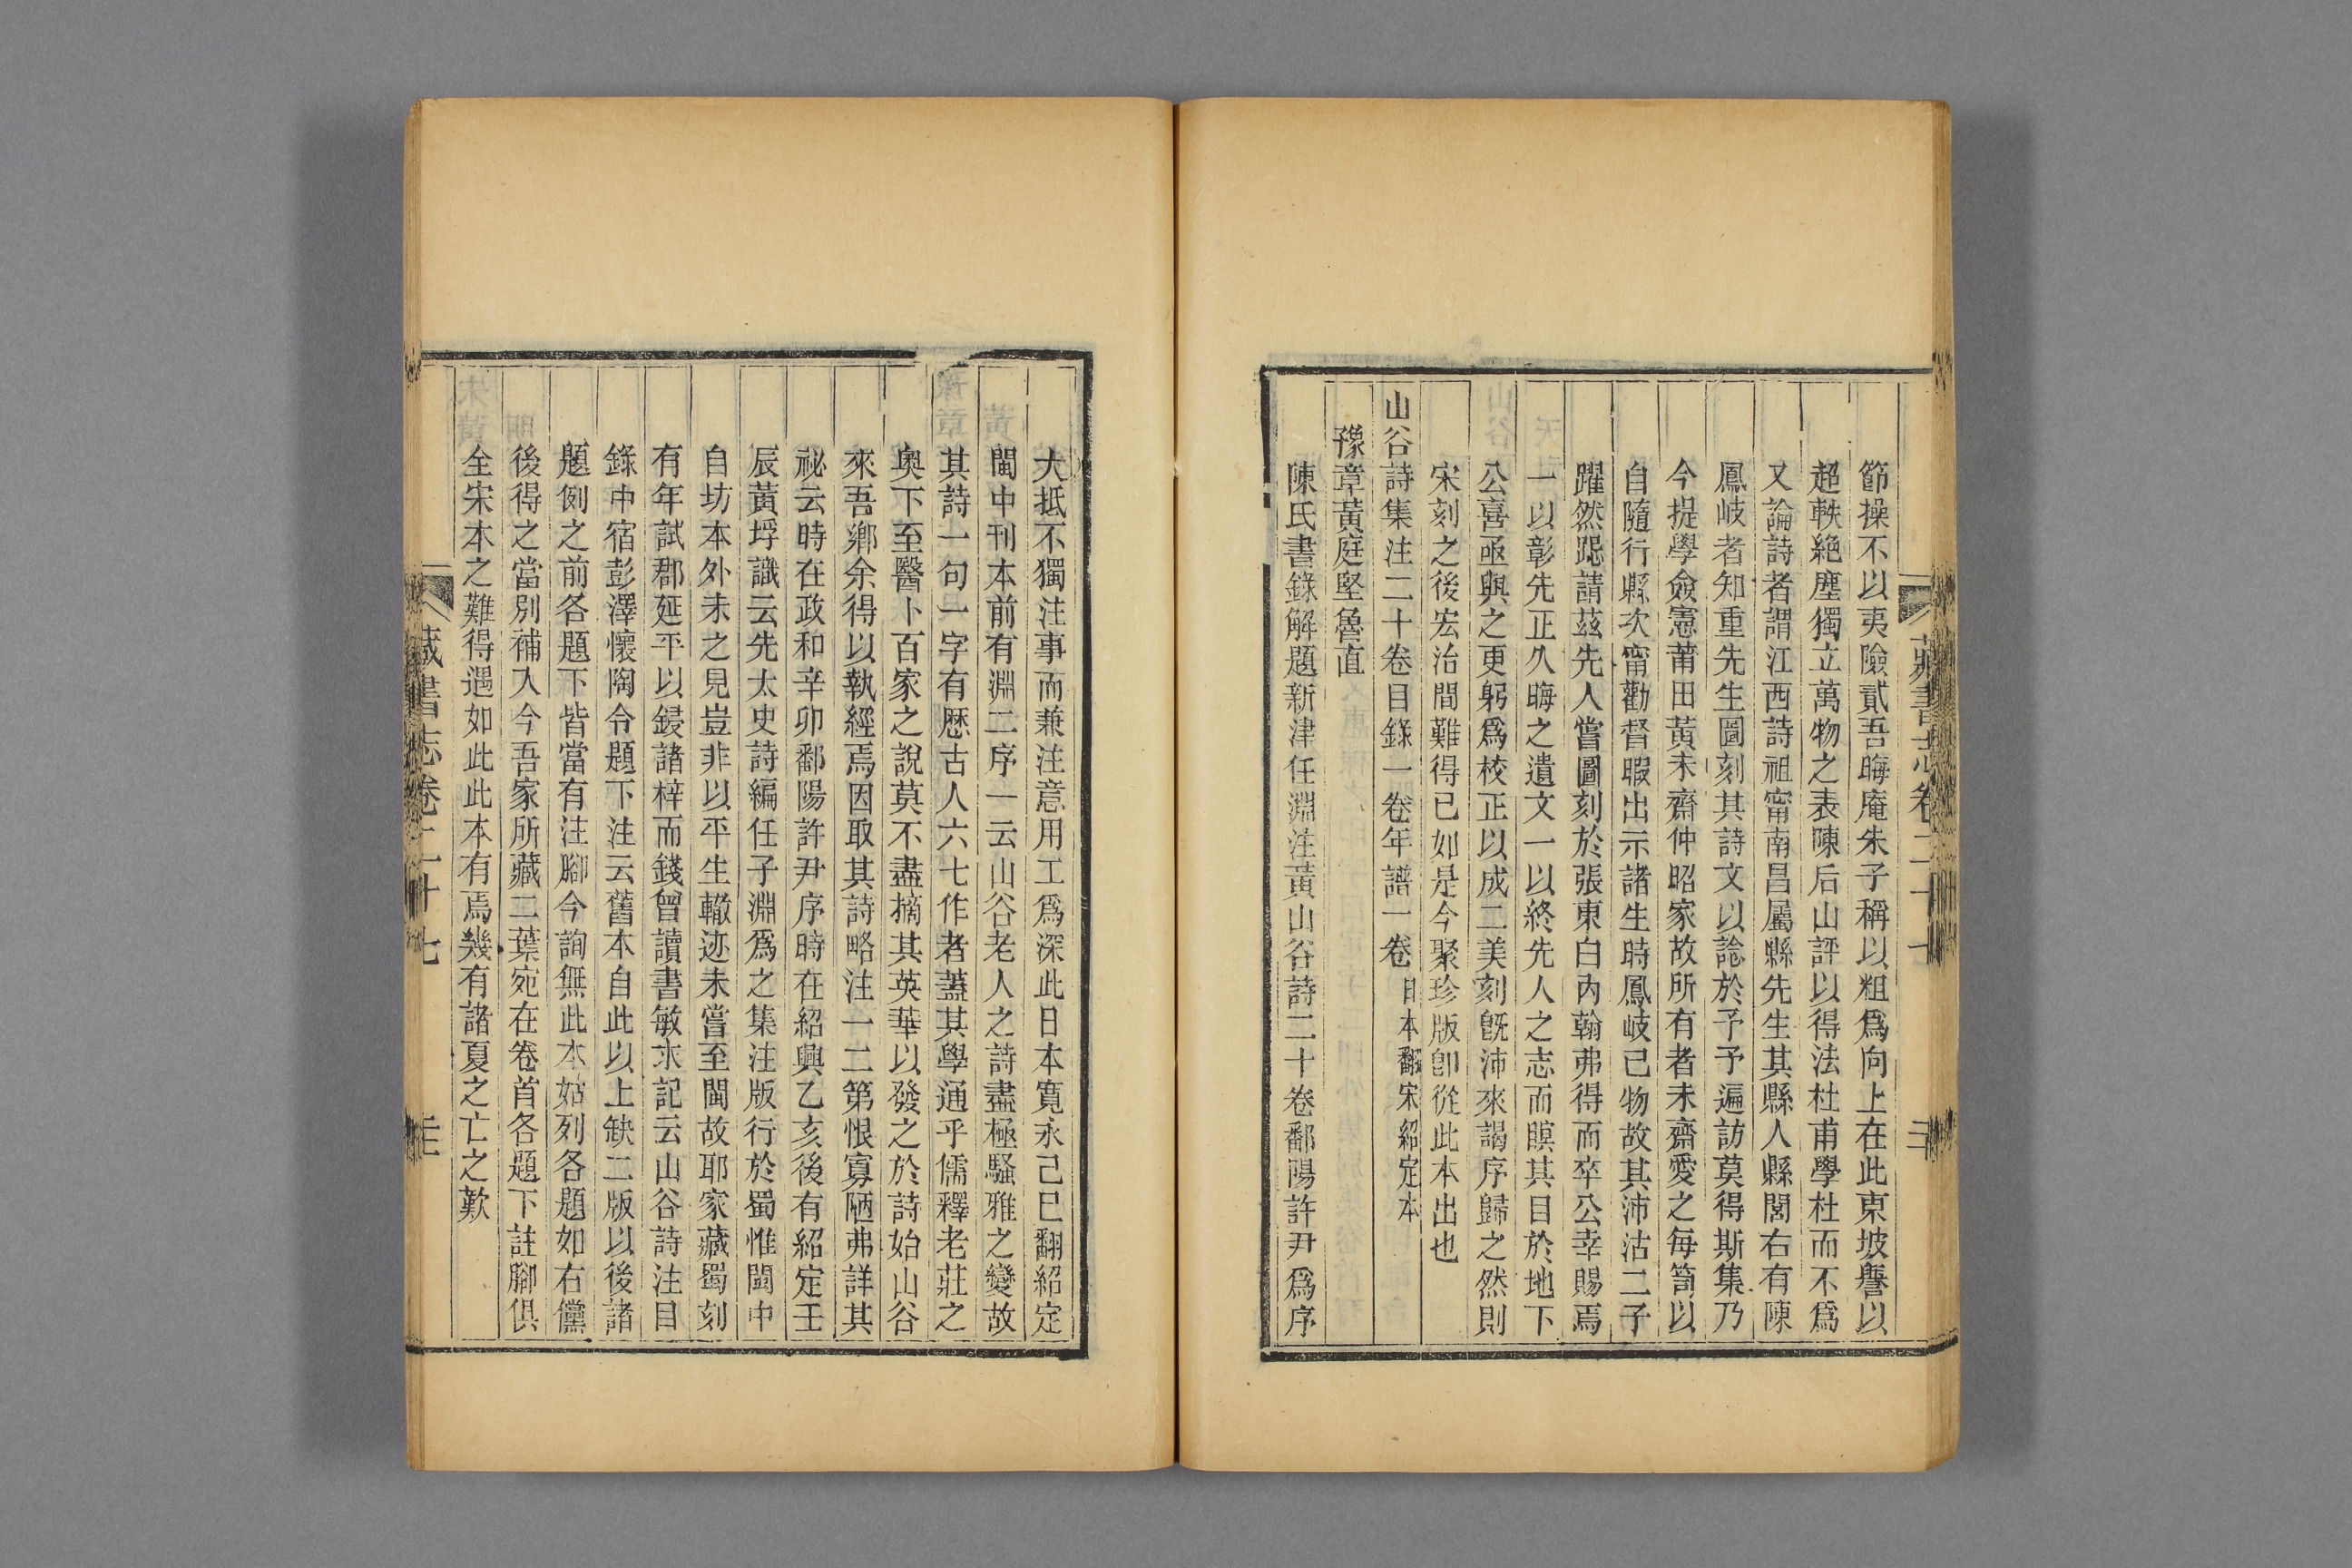 節操不以夷險貳吾晦庵朱子稱以粗爲向上在此東坡譽以
超軼絕塵獨立萬物之表陳后山評以得法杜甫學杜而不爲
又論詩者謂江西詩祖甯南昌屬縣先生其縣人縣閣右有陳
鳳岐者知重先生圖刻其詩文以諗於予予遍訪莫得斯集乃
今提學僉憲莆田黃未齋仲昭家故所有者未齋愛之每笥以
自隨行縣次甯勸督暇出示諸生時鳳岐已物故其沛沽二子
躍然跽請茲先人嘗圖刻於張東白內翰弗得而卒公幸賜焉
一以彰先正久晦之遺文一以終先人之志而瞑其目於地下
公喜亟與之更躬爲校正以成二美刻旣沛來謁序歸之然則
宋刻之後宏治間難得已如是今聚珍版卽從此本出也
山谷詩集注二十卷目錄一卷年譜一卷日本翻宋紹定本
豫章黃庭堅魯直
陳氏書錄解題新津任淵注黃山谷詩二十卷鄱陽許尹爲序
藏書志卷二十七
大抵不獨注事而兼注意用工爲深此日本寬永己巳翻紹定
閩中刊本前有淵二序一云山谷老人之詩盡極騷雅之變故
其詩一句一字有歷古人六七作者蓋其學通乎儒釋老莊之
奧下至醫卜百家之說莫不盡摘其英華以發之於詩始山谷
來吾鄉余得以執經焉因取其詩略注一二第恨寡陋弗詳其
祕云時在政和辛卯鄱陽許尹序時在紹興乙亥後有紹定壬
辰黃埒識云先太史詩編任子淵爲之集注版行於蜀惟閩中
自坊本外未之見豈非以平生轍迹未嘗至閩故耶家藏蜀刻
有年試郡延平以鋟諸梓而錢曾讀書敏求記云山谷詩注目
錄中宿彭澤懷陶令題下注云舊本自此以上缺二版以後諸
題例之前各題下皆當有注腳今詢無此本姑列各題如右儻
後得之當別補入今吾家所藏二葉宛在卷首各題下註腳俱
全宋本之難得遇如此此本有焉幾有諸夏之亡之歎
藏書志卷二十七